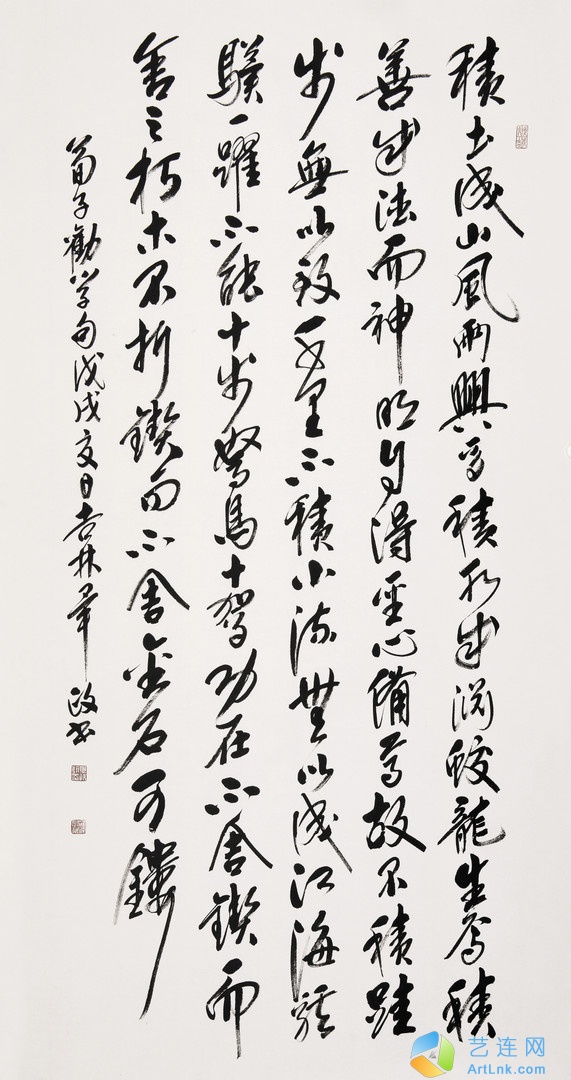 積土成山風雨興焉積水成淵蛟龍生焉積
善成德而神明自得聖心備焉故不積跬
步無以致千里不積小流無以成江海騏
驥一躍不能十步駑馬十駕功在不舍鍥而
舍之朽木不折鍥而不舍金石可鏤
荀子勸學句戊戌夏日吉林政書
艺连网
ArtLnk.com